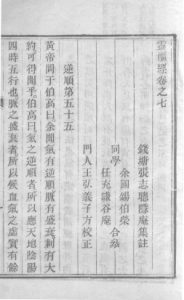 靈樞經卷之七
錢塘張志聰隱菴集註
同學
余國錫伯榮
任谷庵
合參
門人王弘義子方校正
逆順第五十五
黃帝問于伯高曰余聞氣有逆順脈有盛衰刺有大
約可得聞乎伯高曰氣之逆順者所以應天地陰陽
四時五行也脈之盛衰者所以候血氣之虛實有餘